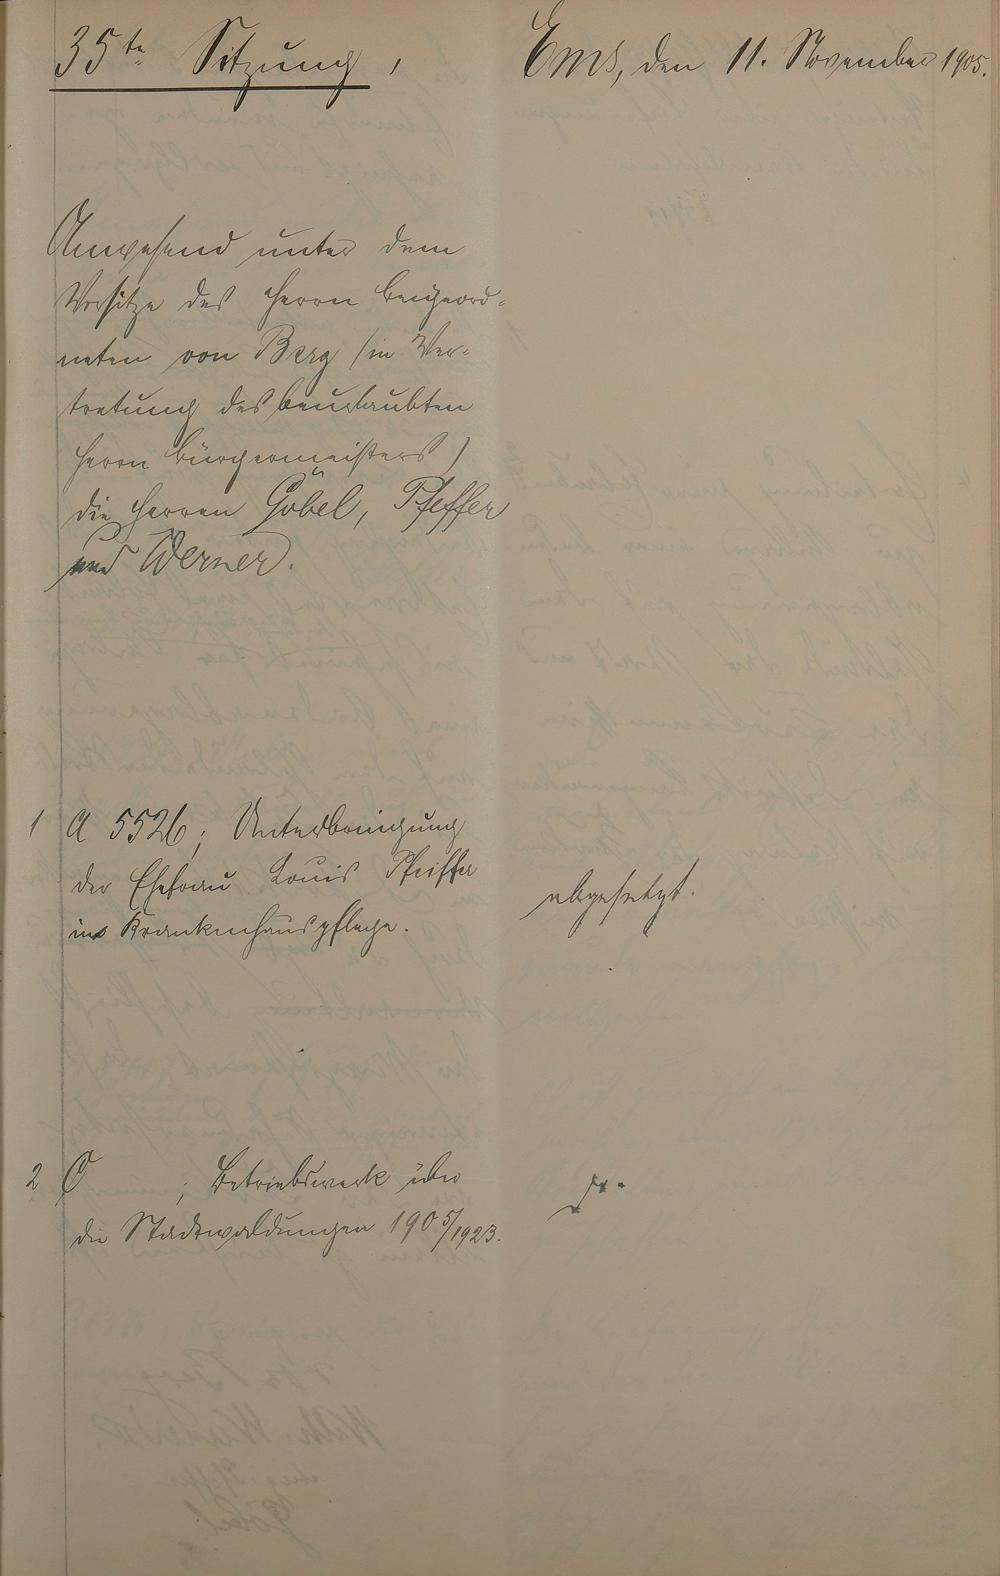 35te Sitzung,
Ems, den 11. November 1905.
Anwesend unter dem
Vorsitze des Herrn Beigeord-
neten von Berg (in Ver-
tretung des beurlaubten
Herrn Bürgermeisters)
die Herren Göbel, Pfeffer
und Werner.
1 A 5526; Unterbringung
der Ehefrau Louis Pfeiffer
in Krankenhauspflege.
abgesetzt.
2 C ; Betriebswerk über
die Stadtwaldungen 1905/1923.